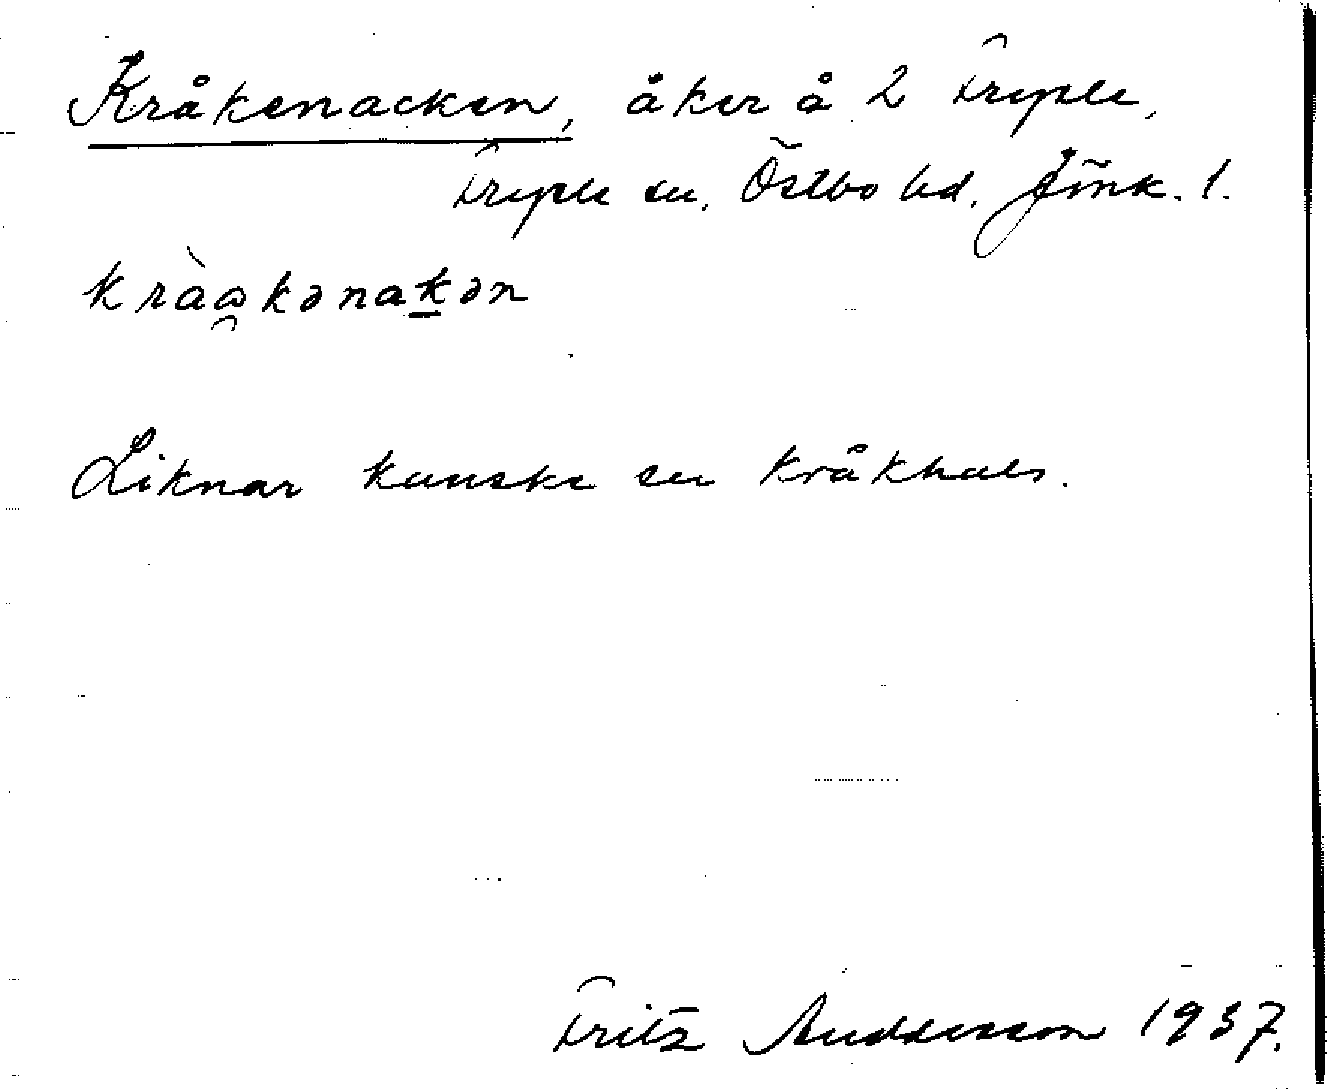 Kråkenacken, åker å 2 Fryele,
Fryele sn. Östbo hd. Jönk. l.
kràa̯kənak̲ən
Liknar kanske en kråkhals.
Fritz Andersson 1937.